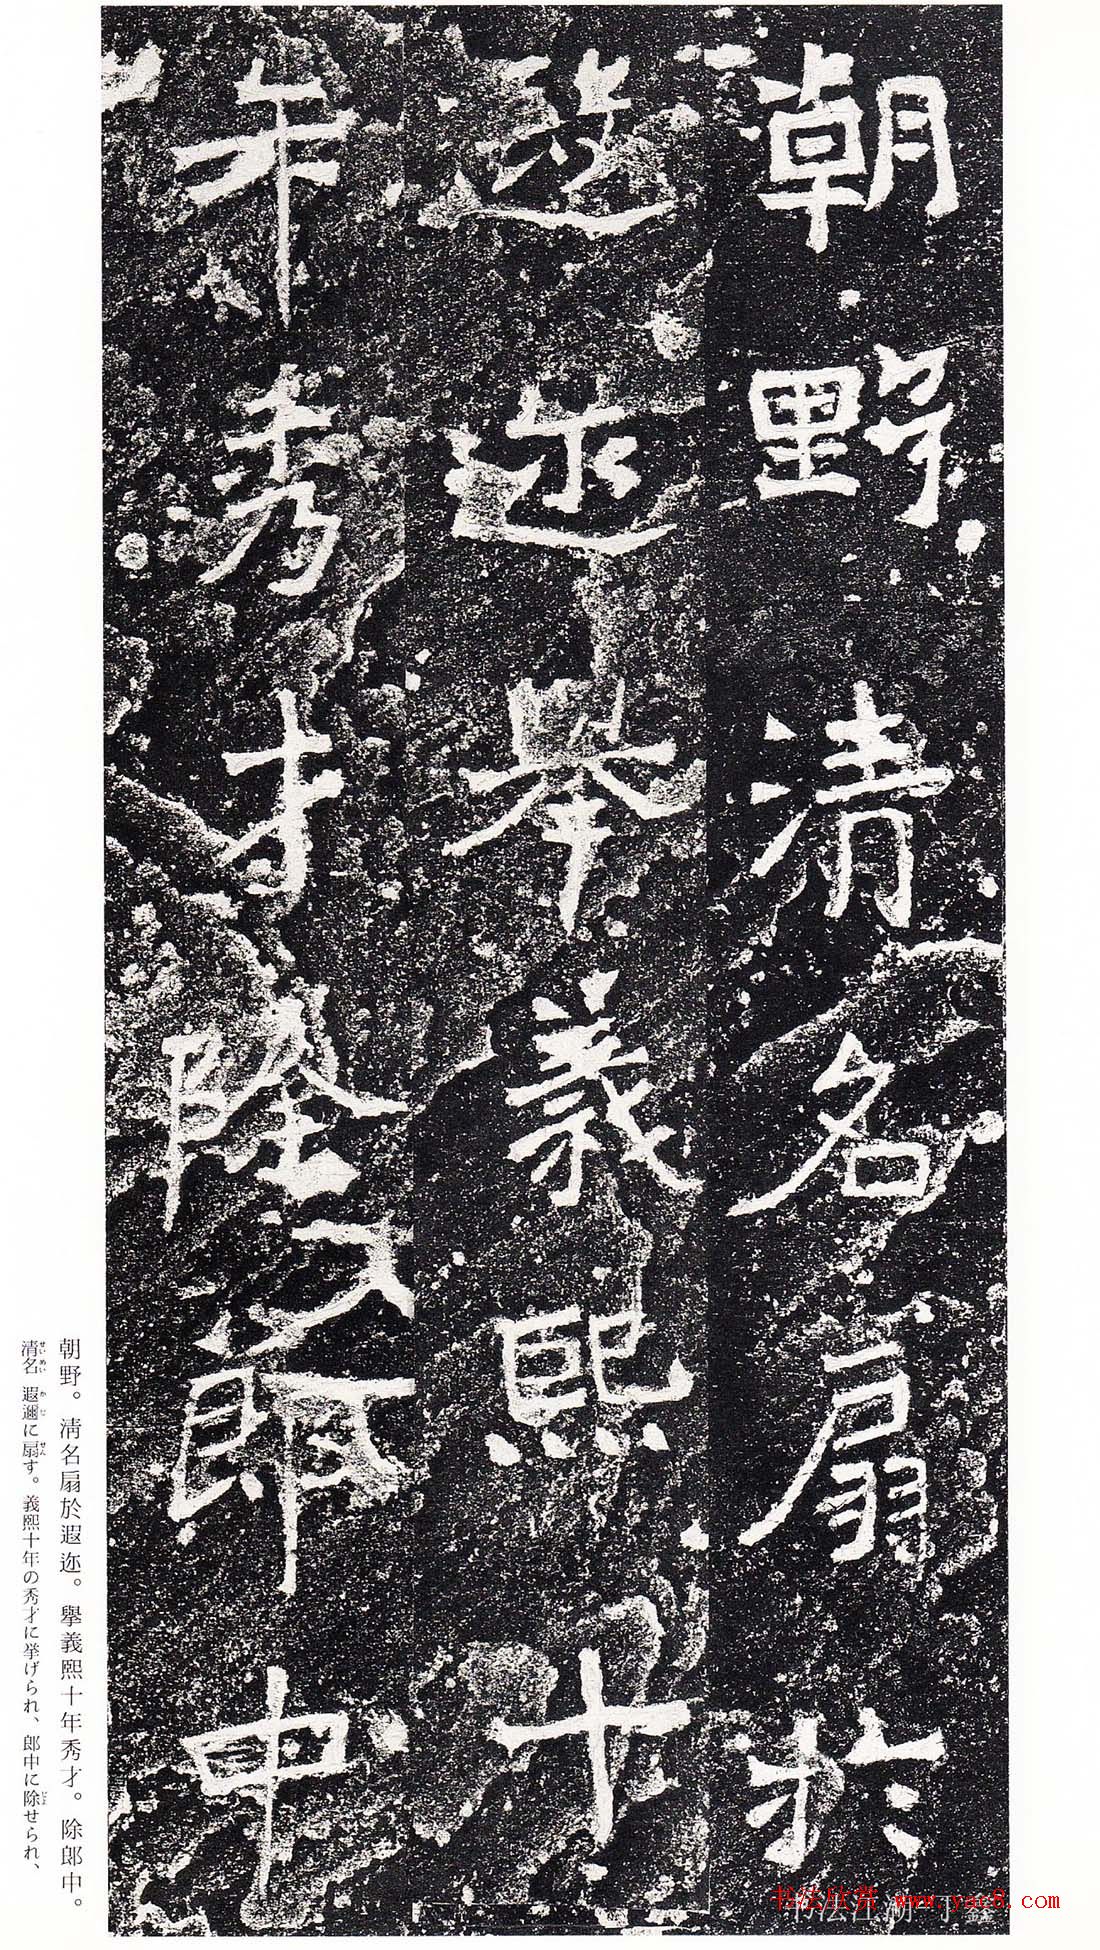 朝野清名扇於
遐迩舉義熙十
年秀才除郎中
朝野。清名扇於遐迩。擧義熙十年秀才。除郎中。
清名遐邇に扇す。義熙十年の秀才に挙げられ、郎中に除せられ、
せいめい かじ せん じょ
书法欣赏 www.yac8.com